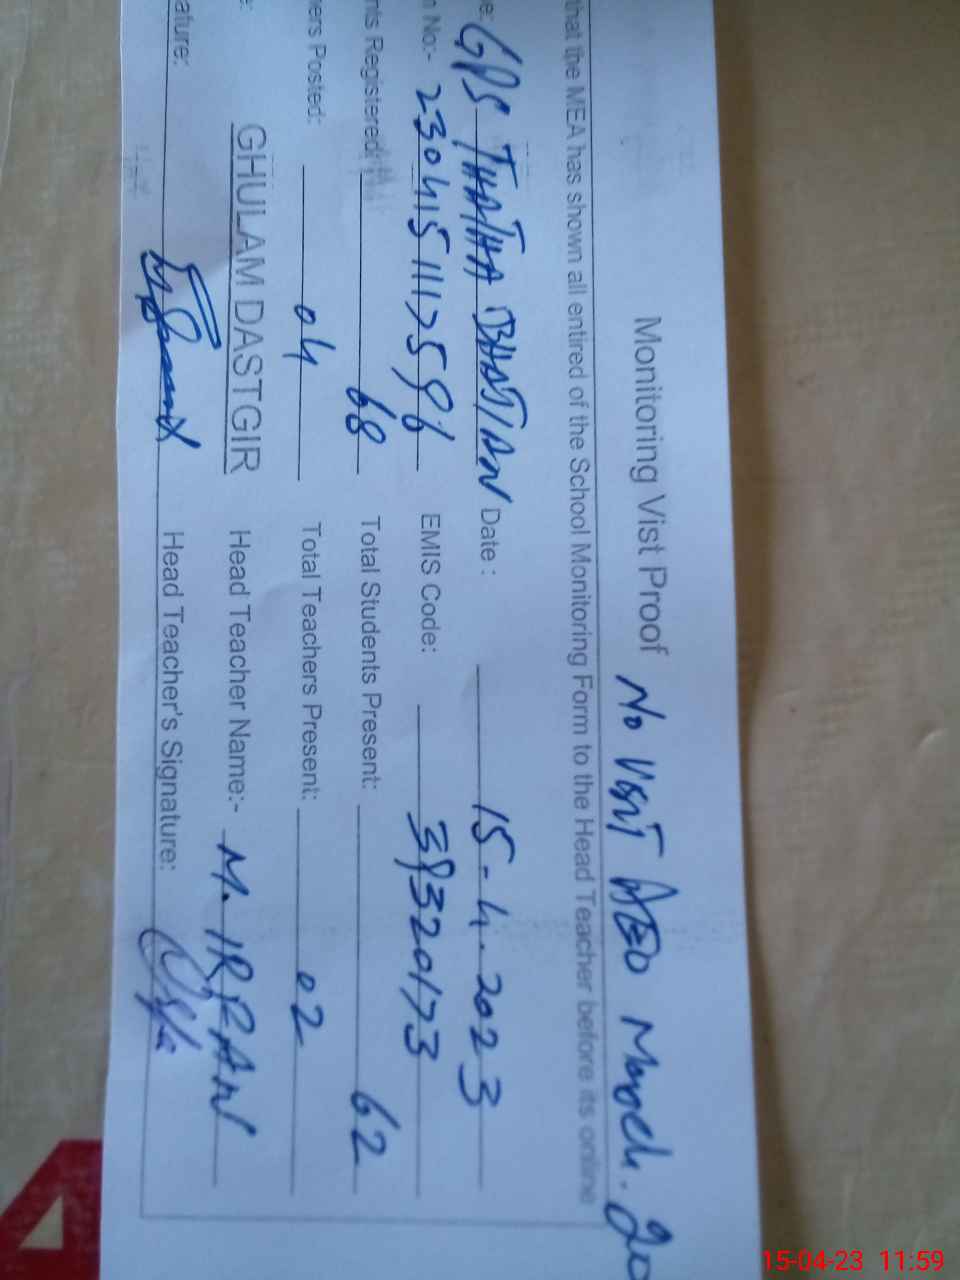 Monitoring Vist Proof No Visit AEO March. 20
that the MEA has shown all entired of the School Monitoring Form to the Head Teacher before its online
e: GPS THATHA BHATIAN Date : 15-4-2023
n No:- 2304151117596 EMIS Code: 39320173
nts Registered: 68 Total Students Present: 62
ers Posted: 04 Total Teachers Present: 02
e: GHULAM DASTGIR Head Teacher Name:- M. IRFAN
ature: Head Teacher's Signature:
15-04-23 11:59